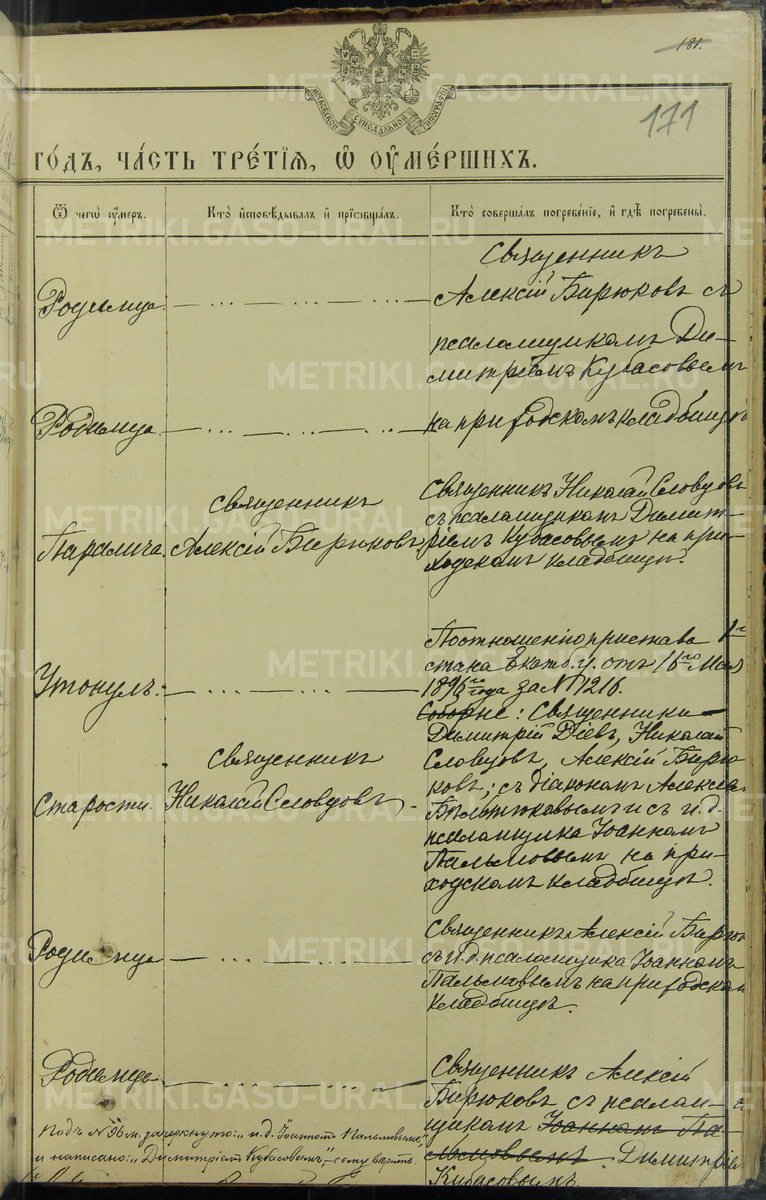 181.
171
МОСКОВСКОЙ СѴНОДАЛЬНОЙ ТИПОГРАФІИ
ГО́ДЪ, ЧА́СТЬ ТРЕ́ТІѦ, Ѡ ОУМЕ́РШИХЪ.
Ѿ чегѡ̀ оу҆́меръ.
Кто̀ и҆сповѣ́дывалъ и҆ прїѡбща́лъ.
Кто̀ соверша́лъ погребе́нїе, и҆ гдѣ̀ погребены̀.
Родимца.
Священникъ
Алексій Бирюковъ съ
псаломщикомъ Ди-
митріемъ Кубасовымъ
Родимца.
на приходскомъ кладбищѣ
Паралича.
Священникъ
Алексій Бирюковъ
Священникъ Николай Словцовъ
съ псаломщикомъ Димит-
ріемъ Кубасовымъ на при-
ходскомъ кладбищѣ.
Утонулъ.
По отношенію пристава 1го
стана Екатб. у. отъ 16го Мая
года за № 1216.
Соборне: Священники
Димитрій Діевъ, Николай
Старости.
Священникъ
Николай Словцовъ.
Словцовъ, Алексій Бирю-
ковъ; съ діакономъ Алексіемъ
и съ и. д.
псаломщика Іоанномъ
Пальмовымъ на при-
ходскомъ кладбищѣ.
Родимца
Священникъ Алексій Бирюк
съ и. д. псаломщика Іоанномъ
Пальмовымъ на приходском
кладбищѣ.
Родимца
Священникъ Алексій
Бирюковъ съ псалом-
щикомъ Іоанномъ Па-
льмовымъ. Димитріем
Кубасовымъ
Подъ № 96 м. зачеркнуто: „и. д. Іоанномъ Пальмовымъ“
и написано: „Димитріемъ Кубасовымъ“, – сему вѣрить.
METRIKI.GASO-URAL.RU